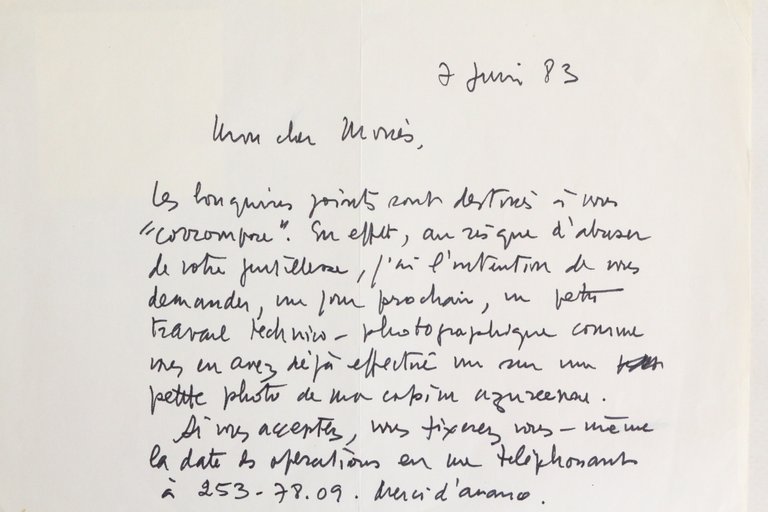 7 Juin 83
Mon cher Monès,
Les bouquins joints sont destinés à vous
"corrompre". En effet, au risque d'abuser
de votre gentillesse, j'ai l'intention de vous
demander, un jour prochain, un petit
travail technico-photographique comme
vous en avez déjà effectué un sur une
petite photo de ma copine azuréenne.
Si vous acceptez, vous fixerez vous-même
la date des opérations en me téléphonant
à 253-78.09. Merci d'avance.